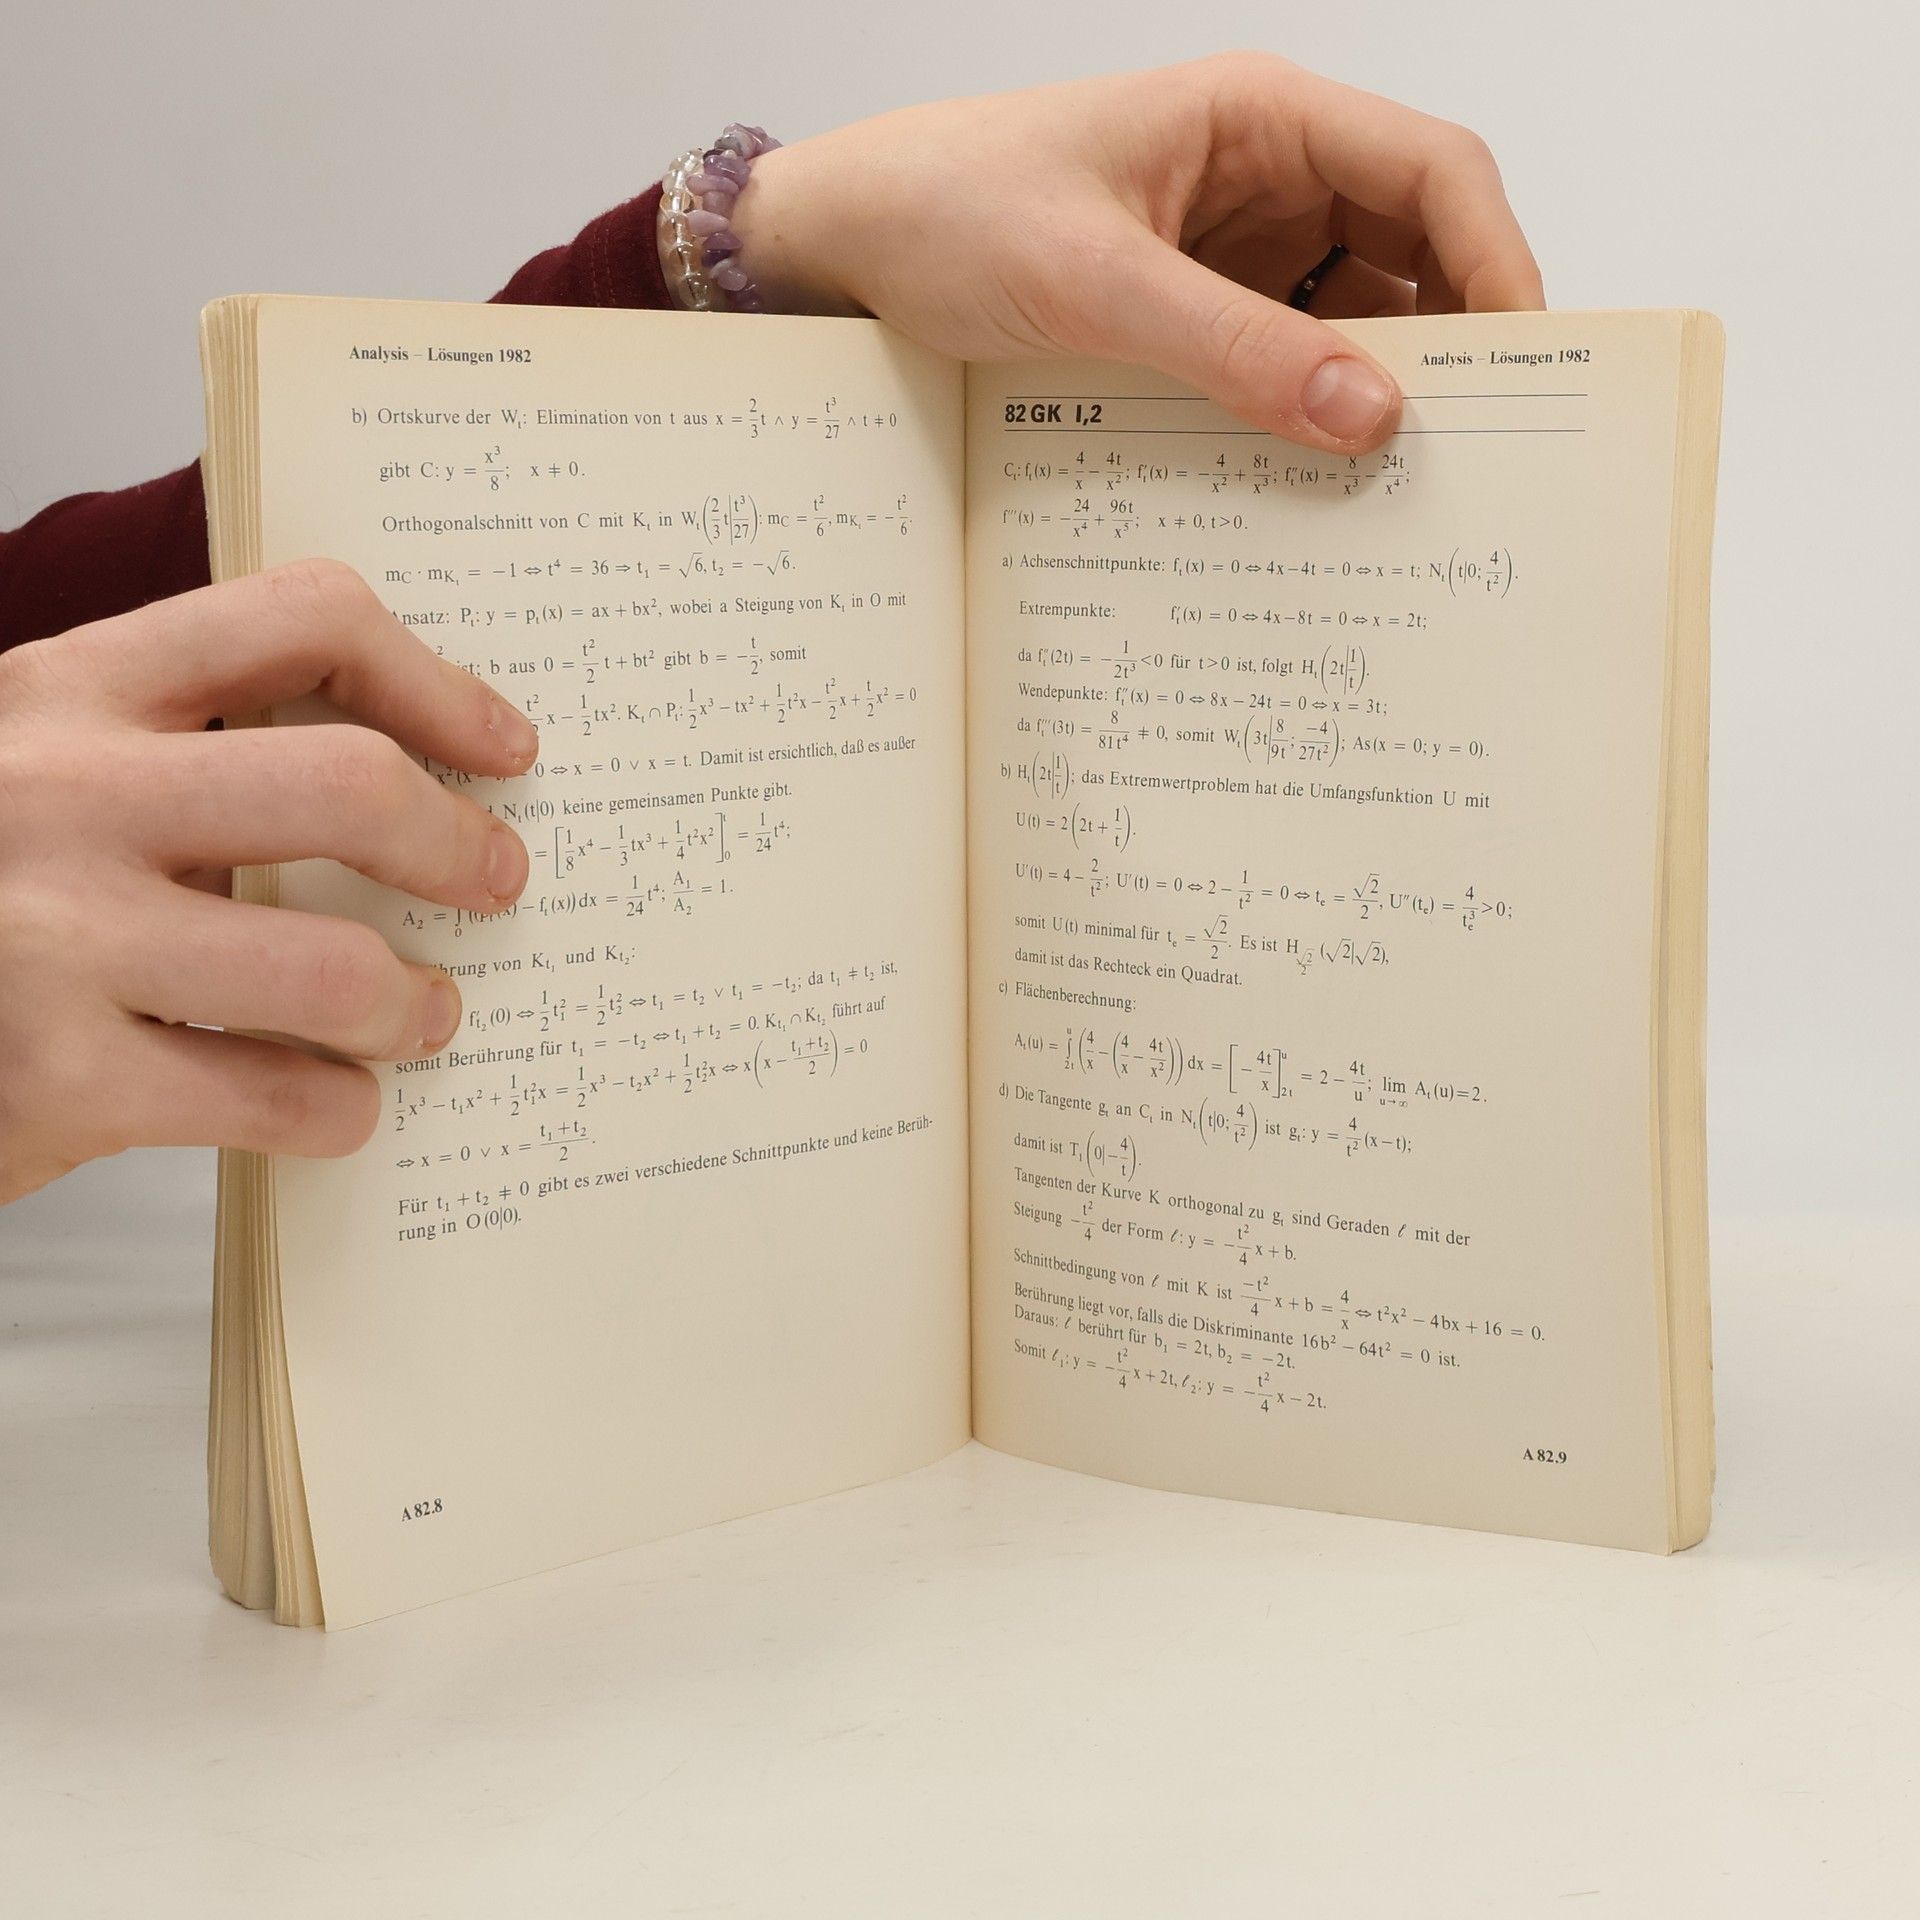 Analysis – Lösungen 1982
b) Ortskurve der Wₜ: Elimination von t aus x = 2/3 t ∧ y = t³/27 ∧ t ≠ 0
gibt C: y = x³/8; x ≠ 0.
Orthogonalschnitt von C mit Kₜ in Wₜ(2/3 t | t³/27): m_C = t²/6, m_Kₜ = −t²/6.
m_C · m_Kₜ = −1 ⇔ t⁴ = 36 ⇒ t₁ = √6, t₂ = −√6.
Pₜ: y = pₜ(x) = ax + bx², wobei a Steigung von Kₜ in O mit
b aus 0 = t²/2 t + bt² gibt b = −t/2, somit
x − 1/2 tx². Kₜ ∩ Pₜ: 1/2 x³ − tx² + 1/2 t²x − t²/2 x + t/2 x² = 0
0 ⇔ x = 0 ∨ x = t. Damit ist ersichtlich, daß es außer
Nₜ(t|0) keine gemeinsamen Punkte gibt.
= [1/8 x⁴ − 1/3 tx³ + 1/4 t²x²]₀ᵗ = 1/24 t⁴;
A₂ = − fₜ(x)) dx = 1/24 t⁴; A₁/A₂ = 1.
von Kₜ₁ und Kₜ₂:
f′ₜ₂(0) ⇔ 1/2 t₁² = 1/2 t₂² ⇔ t₁ = t₂ ∨ t₁ = −t₂; da t₁ ≠ t₂ ist,
somit Berührung für t₁ = −t₂ ⇔ t₁ + t₂ = 0. Kₜ₁ ∩ Kₜ₂ führt auf
1/2 x³ − t₁x² + 1/2 t₁²x = 1/2 x³ − t₂x² + 1/2 t₂²x ⇔ x(x − (t₁+t₂)/2) = 0
⇔ x = 0 ∨ x = (t₁+t₂)/2.
Für t₁ + t₂ ≠ 0 gibt es zwei verschiedene Schnittpunkte und keine Berüh-
rung in O(0|0).
A 82.8
Analysis – Lösungen 1982
82 GK I,2
Cₜ: fₜ(x) = 4/x − 4t/x²; fₜ′(x) = −4/x² + 8t/x³; fₜ″(x) = 8/x³ − 24t/x⁴;
f‴(x) = −24/x⁴ + 96t/x⁵; x ≠ 0, t > 0.
a) Achsenschnittpunkte: fₜ(x) = 0 ⇔ 4x − 4t = 0 ⇔ x = t; Nₜ(t|0; 4/t²).
Extrempunkte: fₜ′(x) = 0 ⇔ 4x − 8t = 0 ⇔ x = 2t;
da fₜ″(2t) = −1/2t³ < 0 für t > 0 ist, folgt Hₜ(2t|1/t).
Wendepunkte: fₜ″(x) = 0 ⇔ 8x − 24t = 0 ⇔ x = 3t;
da fₜ‴(3t) = 8/81t⁴ ≠ 0, somit Wₜ(3t|8/9t; −4/27t²); As(x = 0; y = 0).
b) Hₜ(2t|1/t); das Extremwertproblem hat die Umfangsfunktion U mit
U(t) = 2(2t + 1/t).
U′(t) = 4 − 2/t²; U′(t) = 0 ⇔ 2 − 1/t² = 0 ⇔ tₑ = √2/2, U″(tₑ) = 4/tₑ³ > 0;
somit U(t) minimal für tₑ = √2/2. Es ist H_√2/2 (√2|√2),
damit ist das Rechteck ein Quadrat.
c) Flächenberechnung:
Aₜ(u) = ∫₂ₜᵘ (4/x − (4/x − 4t/x²)) dx = [−4t/x]₂ₜᵘ = 2 − 4t/u; lim u→∞ Aₜ(u) = 2.
d) Die Tangente gₜ an Cₜ in Nₜ(t|0; 4/t²) ist gₜ: y = 4/t² (x − t);
damit ist T₁(0|−4/t).
Tangenten der Kurve K orthogonal zu gₜ sind Geraden ℓ mit der
Steigung −t²/4 der Form ℓ: y = −t²/4 x + b.
Schnittbedingung von ℓ mit K ist −t²/4 x + b = 4/x ⇔ t²x² − 4bx + 16 = 0.
Berührung liegt vor, falls die Diskriminante 16b² − 64t² = 0 ist.
Daraus: ℓ berührt für b₁ = 2t, b₂ = −2t.
Somit ℓ₁: y = −t²/4 x + 2t, ℓ₂: y = −t²/4 x − 2t.
A 82.9